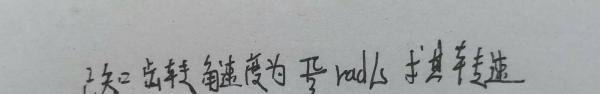 已知齿轮角速度为 π/3 rad/s 求其转速